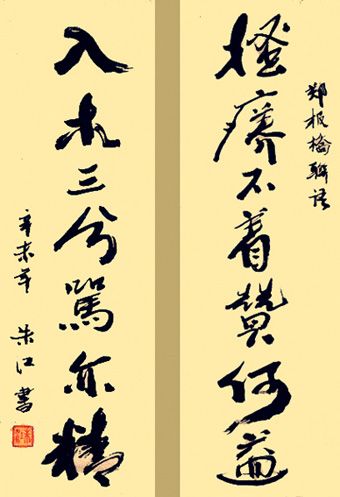 郑板桥联语
搔癢不着贊何益
入木三分罵亦精
辛未年 朱江書